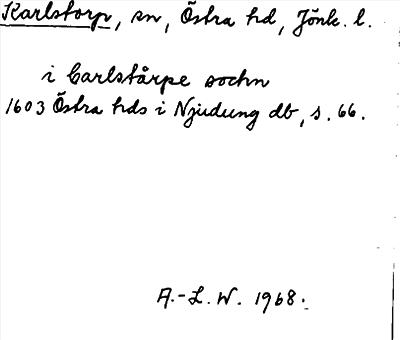 Karlstorp, sn, Östra hd, Jönk. l.
i Carlstårpe sochn
1603 Östra hds i Njudung db, s. 66.
A.-L. W. 1968.